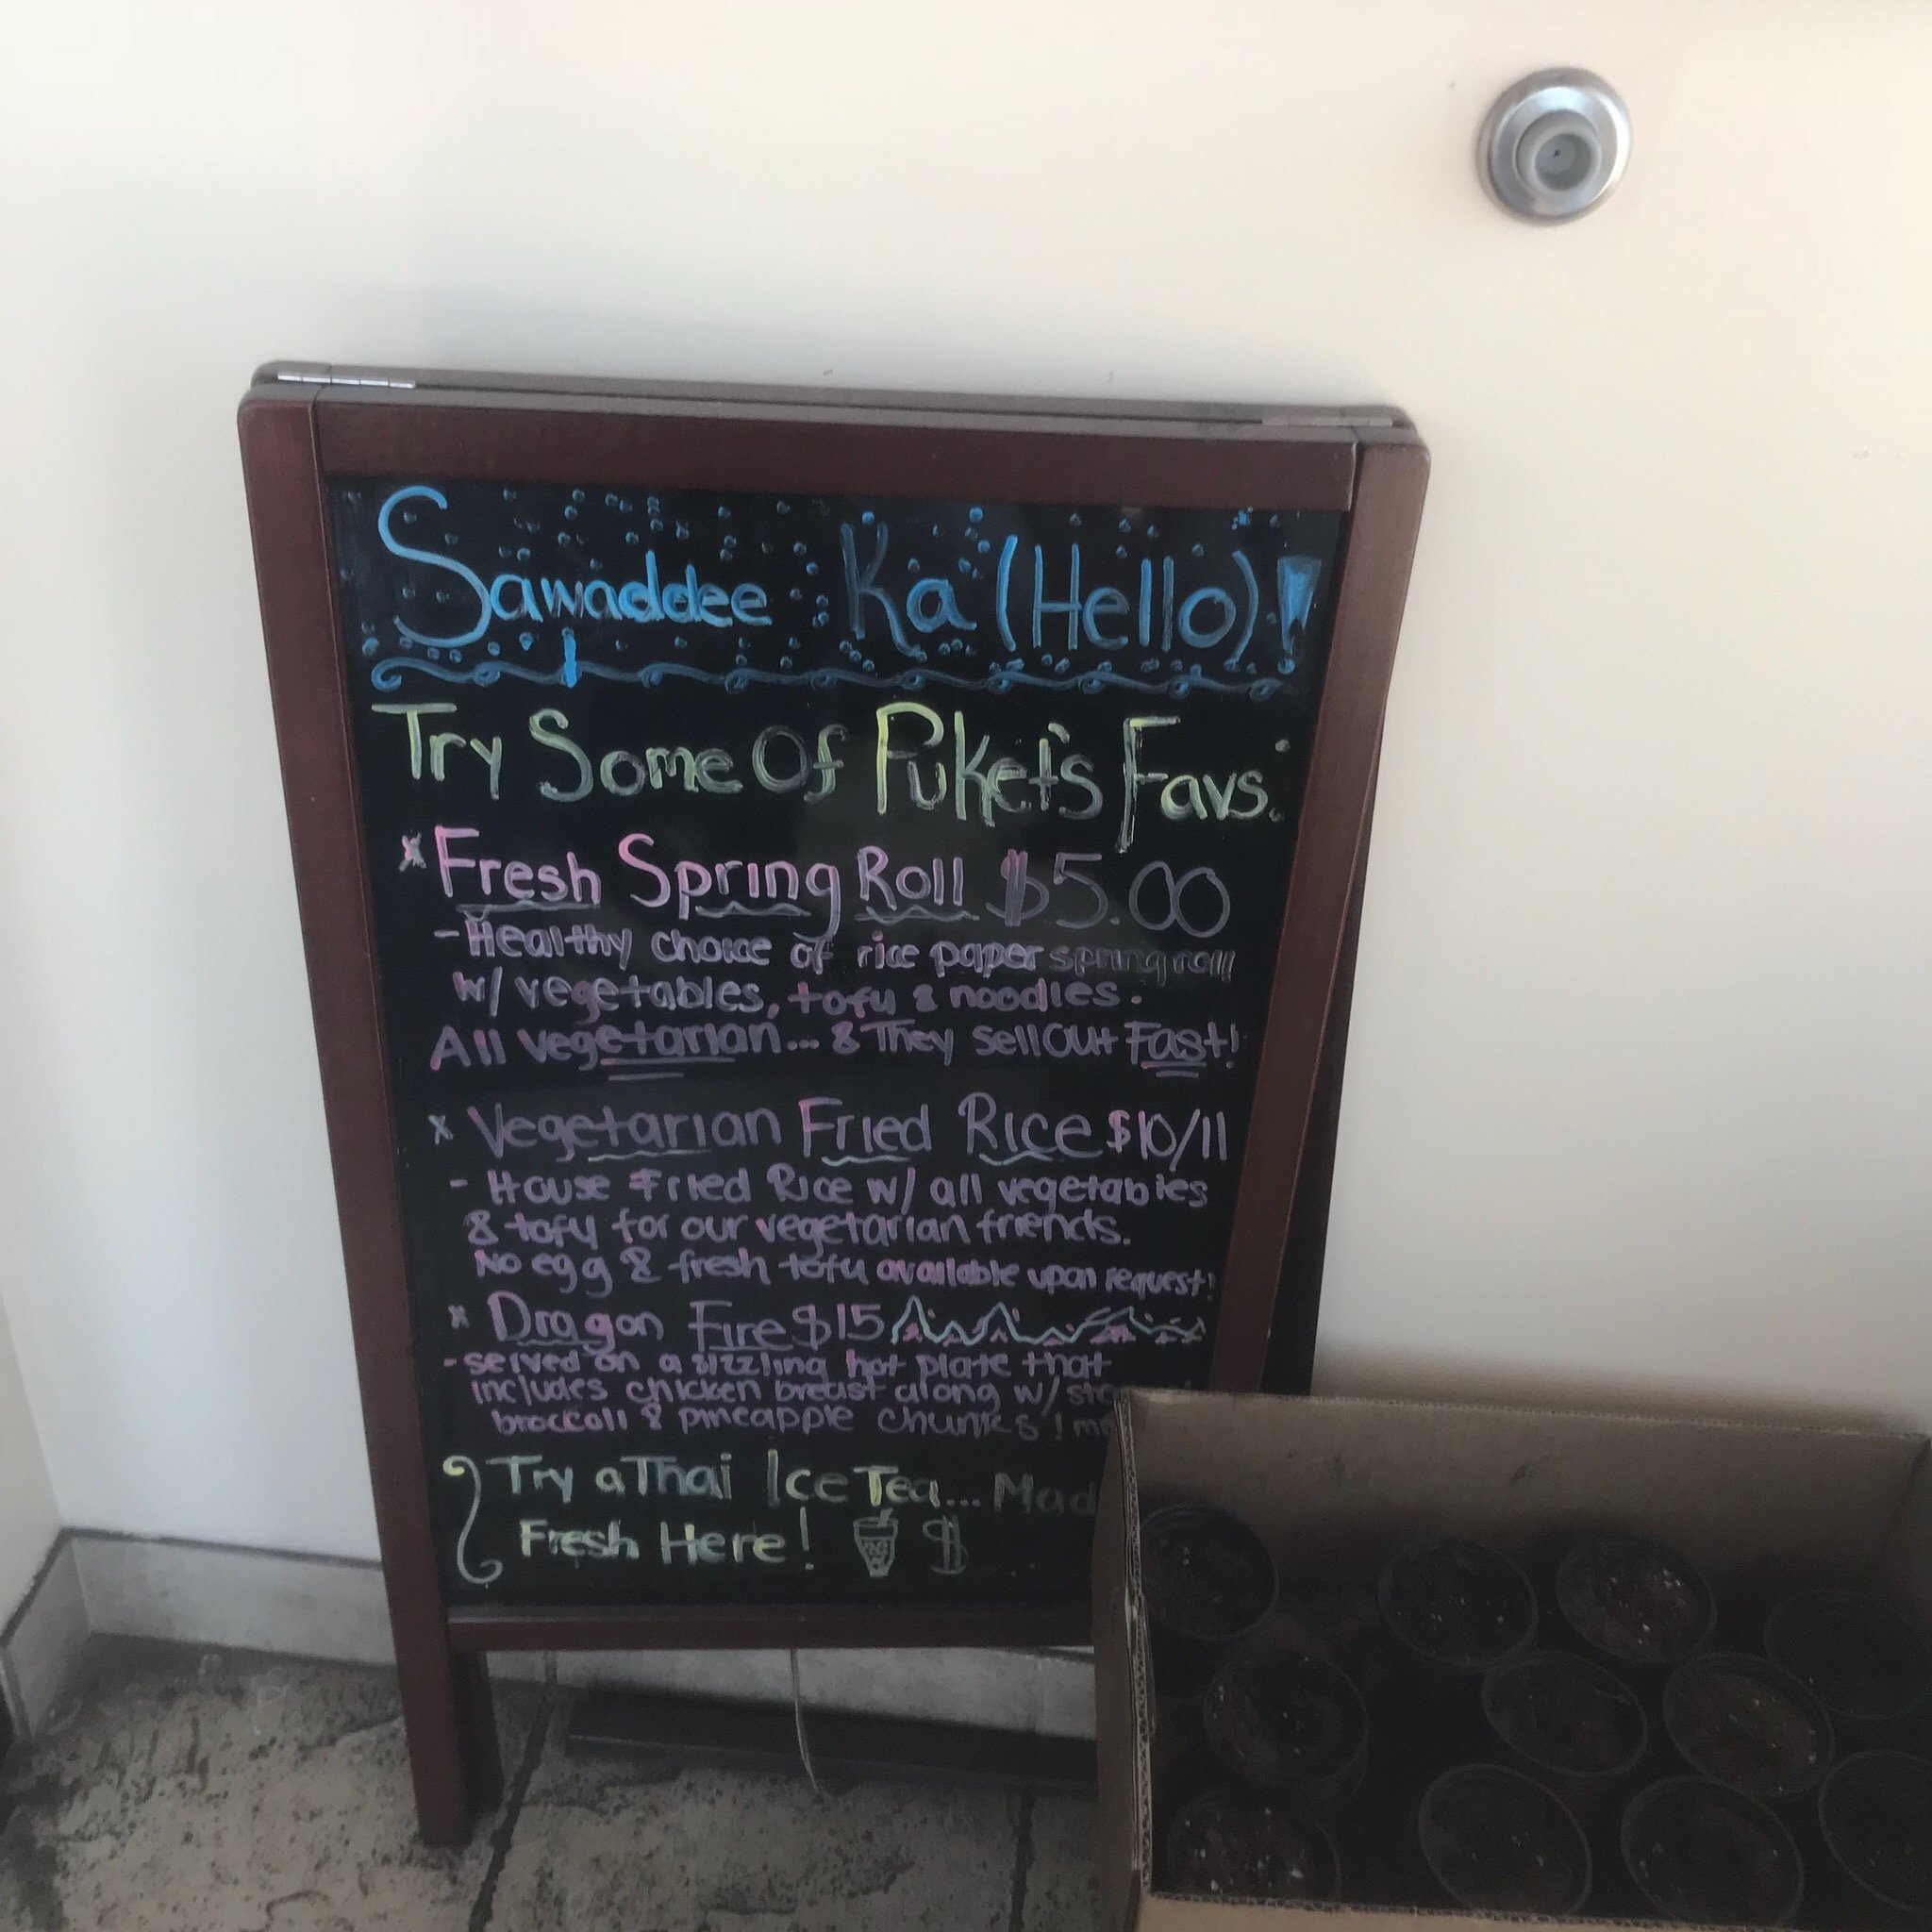 Sawaddee Ka (Hello)!
Try Some Of Puket's Favs.
x Fresh Spring Roll $5.00
- Healthy choice of rice paper spring roll
w/ vegetables, tofu & noodles.
All vegetarian... & They sell out Fast!
x Vegetarian Fried Rice $10/11
- House Fried Rice w/ all vegetables
& tofy for our vegetarian friends.
No egg & fresh tofu available upon request!
x Dragon Fire $15
- served on a sizzling hot plate that
includes chicken breast along w/
broccoli & pineapple chunks!
Try a Thai Ice Tea...
Fresh Here! $